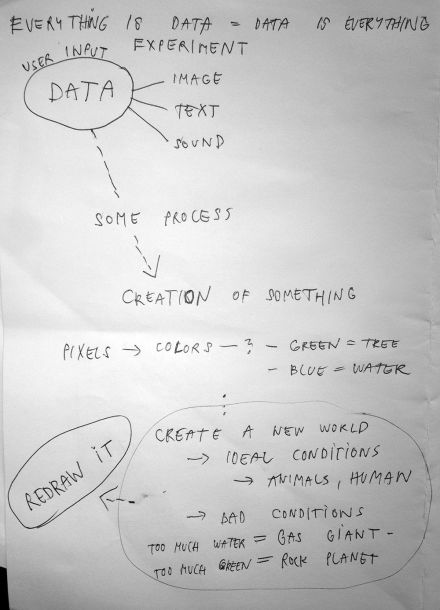 EVERYTHING IS DATA = DATA IS EVERYTHING
EXPERIMENT
USER INPUT
DATA
IMAGE
TEXT
SOUND
SOME PROCESS
CREATION OF SOMETHING
PIXELS → COLORS — ? - GREEN = TREE
- BLUE = WATER
CREATE A NEW WORLD
→ IDEAL CONDITIONS
→ ANIMALS, HUMAN
REDRAW IT
→ BAD CONDITIONS
TOO MUCH WATER = GAS GIANT -
TOO MUCH GREEN = ROCK PLANET